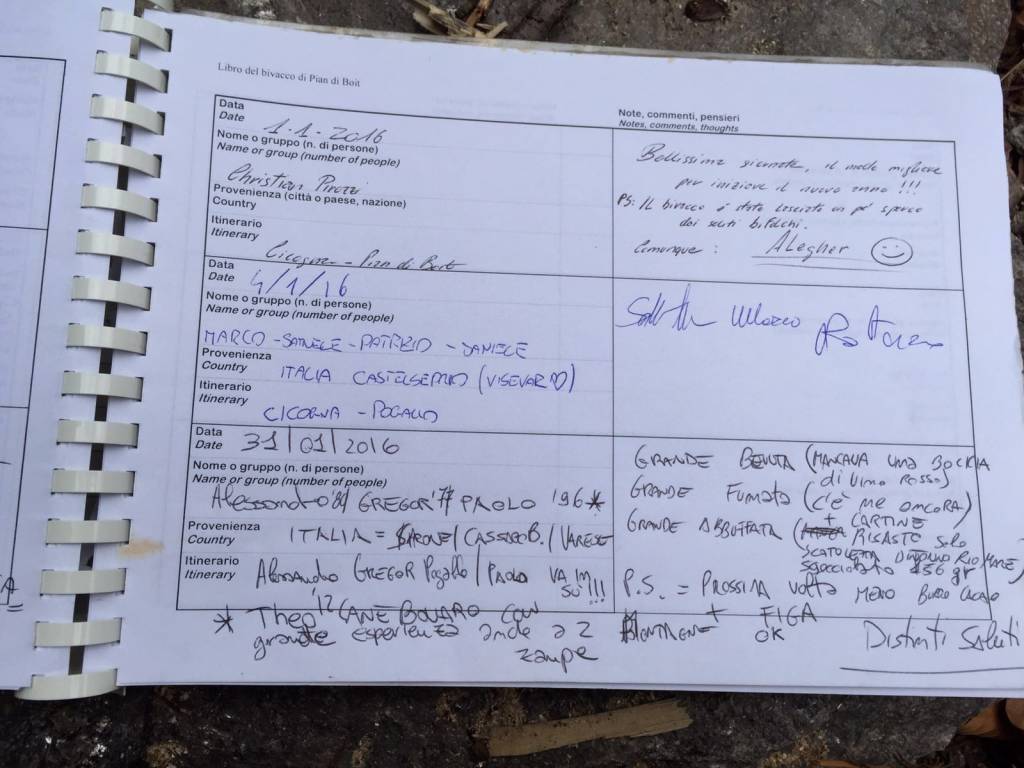 Libro del bivacco di Pian di Boit
Data
Date 1-1-2016
Nome o gruppo (n. di persone)
Name or group (number of people)
Christian
Provenienza (città o paese, nazione)
Country
Itinerario
Itinerary
Cicogna - Pian di Boit
Note, commenti, pensieri
Notes, comments, thoughts
Bellissima, il modo migliore
per iniziare il nuovo anno !!!
PS: IL bivacco è stato lasciato un pò sporco
dai soliti bifolchi.
Comunque : ALegher
Data
Date 4/1/16
Nome o gruppo (n. di persone)
Name or group (number of people)
MARCO - - PATRIZIO - DANIELE
Provenienza
Country ITALIA
Itinerario
Itinerary
CICOGNA - POGALLO
Marco
Data
Date 31/01/2016
Nome o gruppo (n. di persone)
Name or group (number of people)
Alessandro GREGOR PAOLO '96*
Provenienza
Country ITALIA = / CASSANO B. / VARESE
Itinerario
Itinerary Alessandro GREGOR Pogallo / PAOLO VA IN
SU !!!
GRANDE BEVUTA (MANCAVA UNA BOCCIA
di VINO ROSSO)
GRANDE FUMATA (C'È NE ANCORA)
+ CARTINE
GRANDE ABBUFFATA ( RISASTO SOLO
SCATOLETTA RIO MARE
150 gr)
P.S. = PROSSIMA VOLTA MENO
+ FIGA
MONTAGNE OK
Distinti Saluti
* Theo '12 CANE BOVARO CON
grande esperienza anche a 2
zampe